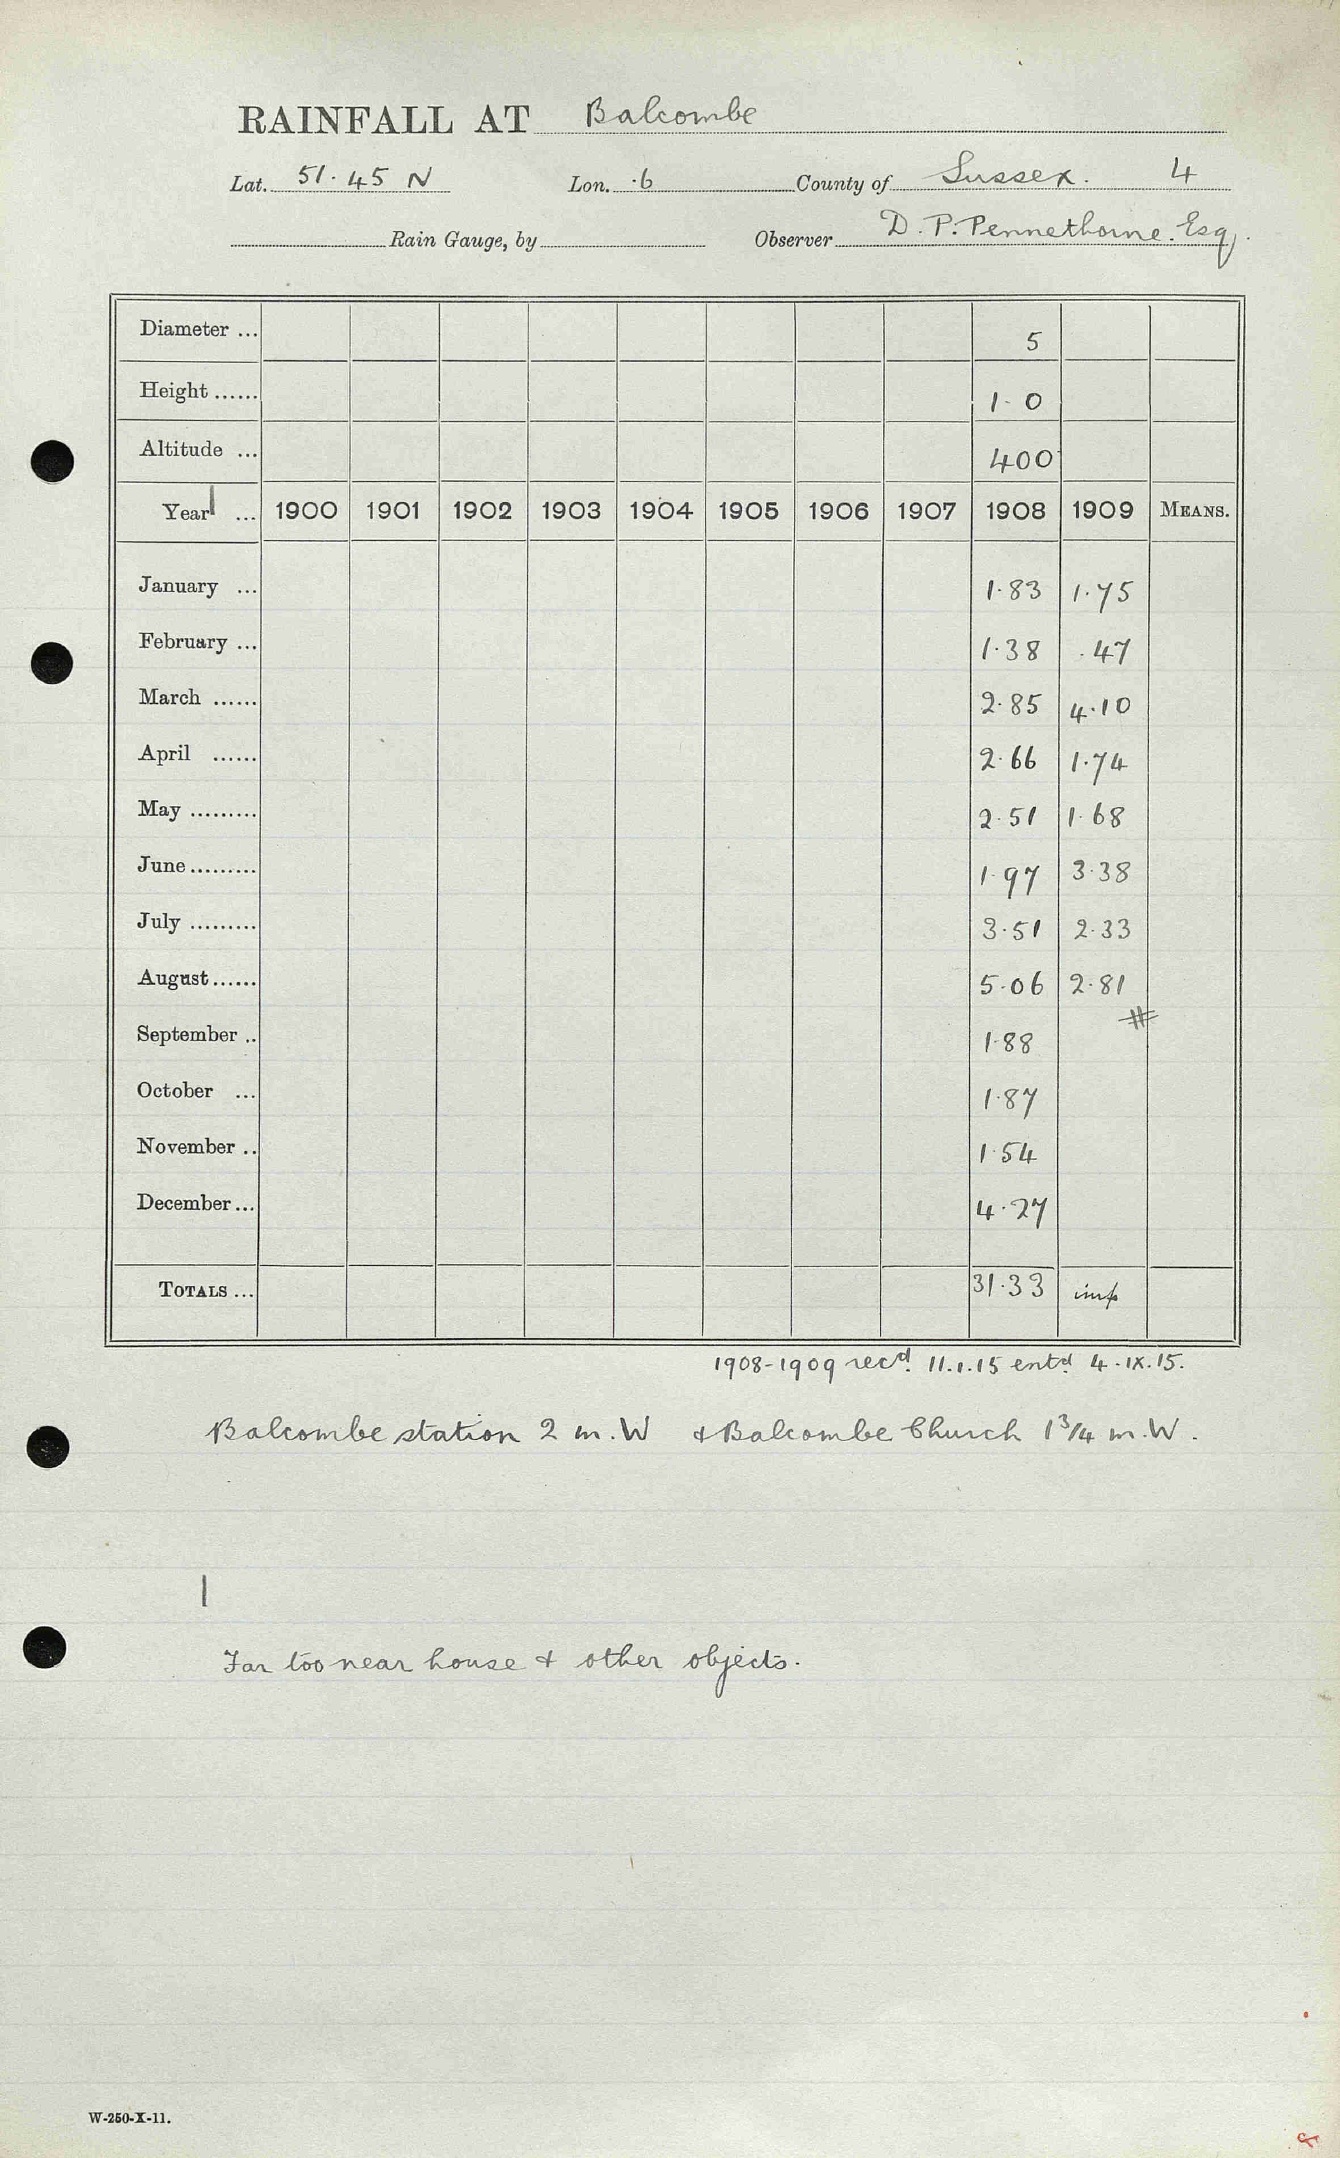 RAINFALL AT Balcombe
Lat. 51.45 N Lon. .6 County of Sussex. 4
Rain Gauge, by Observer D. P. Pennethorne. Esq.
Diameter ... 5
Height ...... 1 - 0
Altitude ... 400
Year ... 1900 1901 1902 1903 1904 1905 1906 1907 1908 1909 MEANS.
January ... 1.83 1.75
February ... 1.38 .47
March ...... 2.85 4.10
April ...... 2.66 1.74
May ......... 2.51 1.68
June ......... 1.97 3.38
July ......... 3.51 2.33
August ...... 5.06 2.81
#
September .. 1.88
October ... 1.87
November .. 1.54
December ... 4.27
TOTALS ... 31.33 imp
1908-1909 recd. 11.1.15 entd 4.IX.15.
Balcombe station 2 m. W & Balcombe Church 1 3/4 m. W.
Far too near house & other objects.
W-250-X-11.